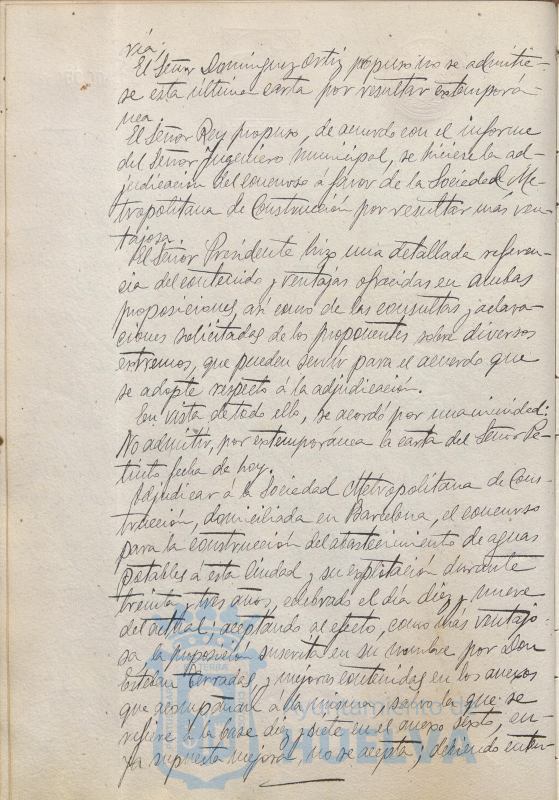 vía.
El Señor Domínguez Ortiz propuso no se admitie-
se esta última carta por resultar extemporá-
nea.
El Señor Rey propuso, de acuerdo con el informe
del Señor Ingeniero Municipal, se hiciere la ad-
judicación del concurso á favor de la Sociedad Me-
tropolitana de Construcción por resultar más ven-
tajosa.
El Señor Presidente hizo una detallada referen-
cia del contenido y ventajas ofrecidas en ambas
proposiciones, así como de las consultas y aclara-
ciones solicitadas de los proponentes sobre diversos
extremos, que pueden servir para el acuerdo que
se adopte respecto á la adjudicación.
En vista de todo ello, se acordó por unanimidad:
No admitir, por extemporánea la carta del Señor Pe-
tinto fecha de hoy.
Adjudicar á la Sociedad Metropolitana de Cons-
trucción, domiciliada en Barcelona, el concurso
para la construcción del abastecimiento de aguas
potables á esta Ciudad y su explotación durante
treinta y tres años, celebrado el día diez y nueve
del actual; aceptando al efecto, como más ventajo-
sa la proposición suscrita en su nombre por Don
Esteban Terradas y mejoras contenidas en los anexos
que acompañan á la misma, salvo la que se
refiere á la base diez y siete en el anexo sexto, cu-
ya supuesta mejora, no se acepta, debiendo enten-
Ayuntamiento de
HUELVA